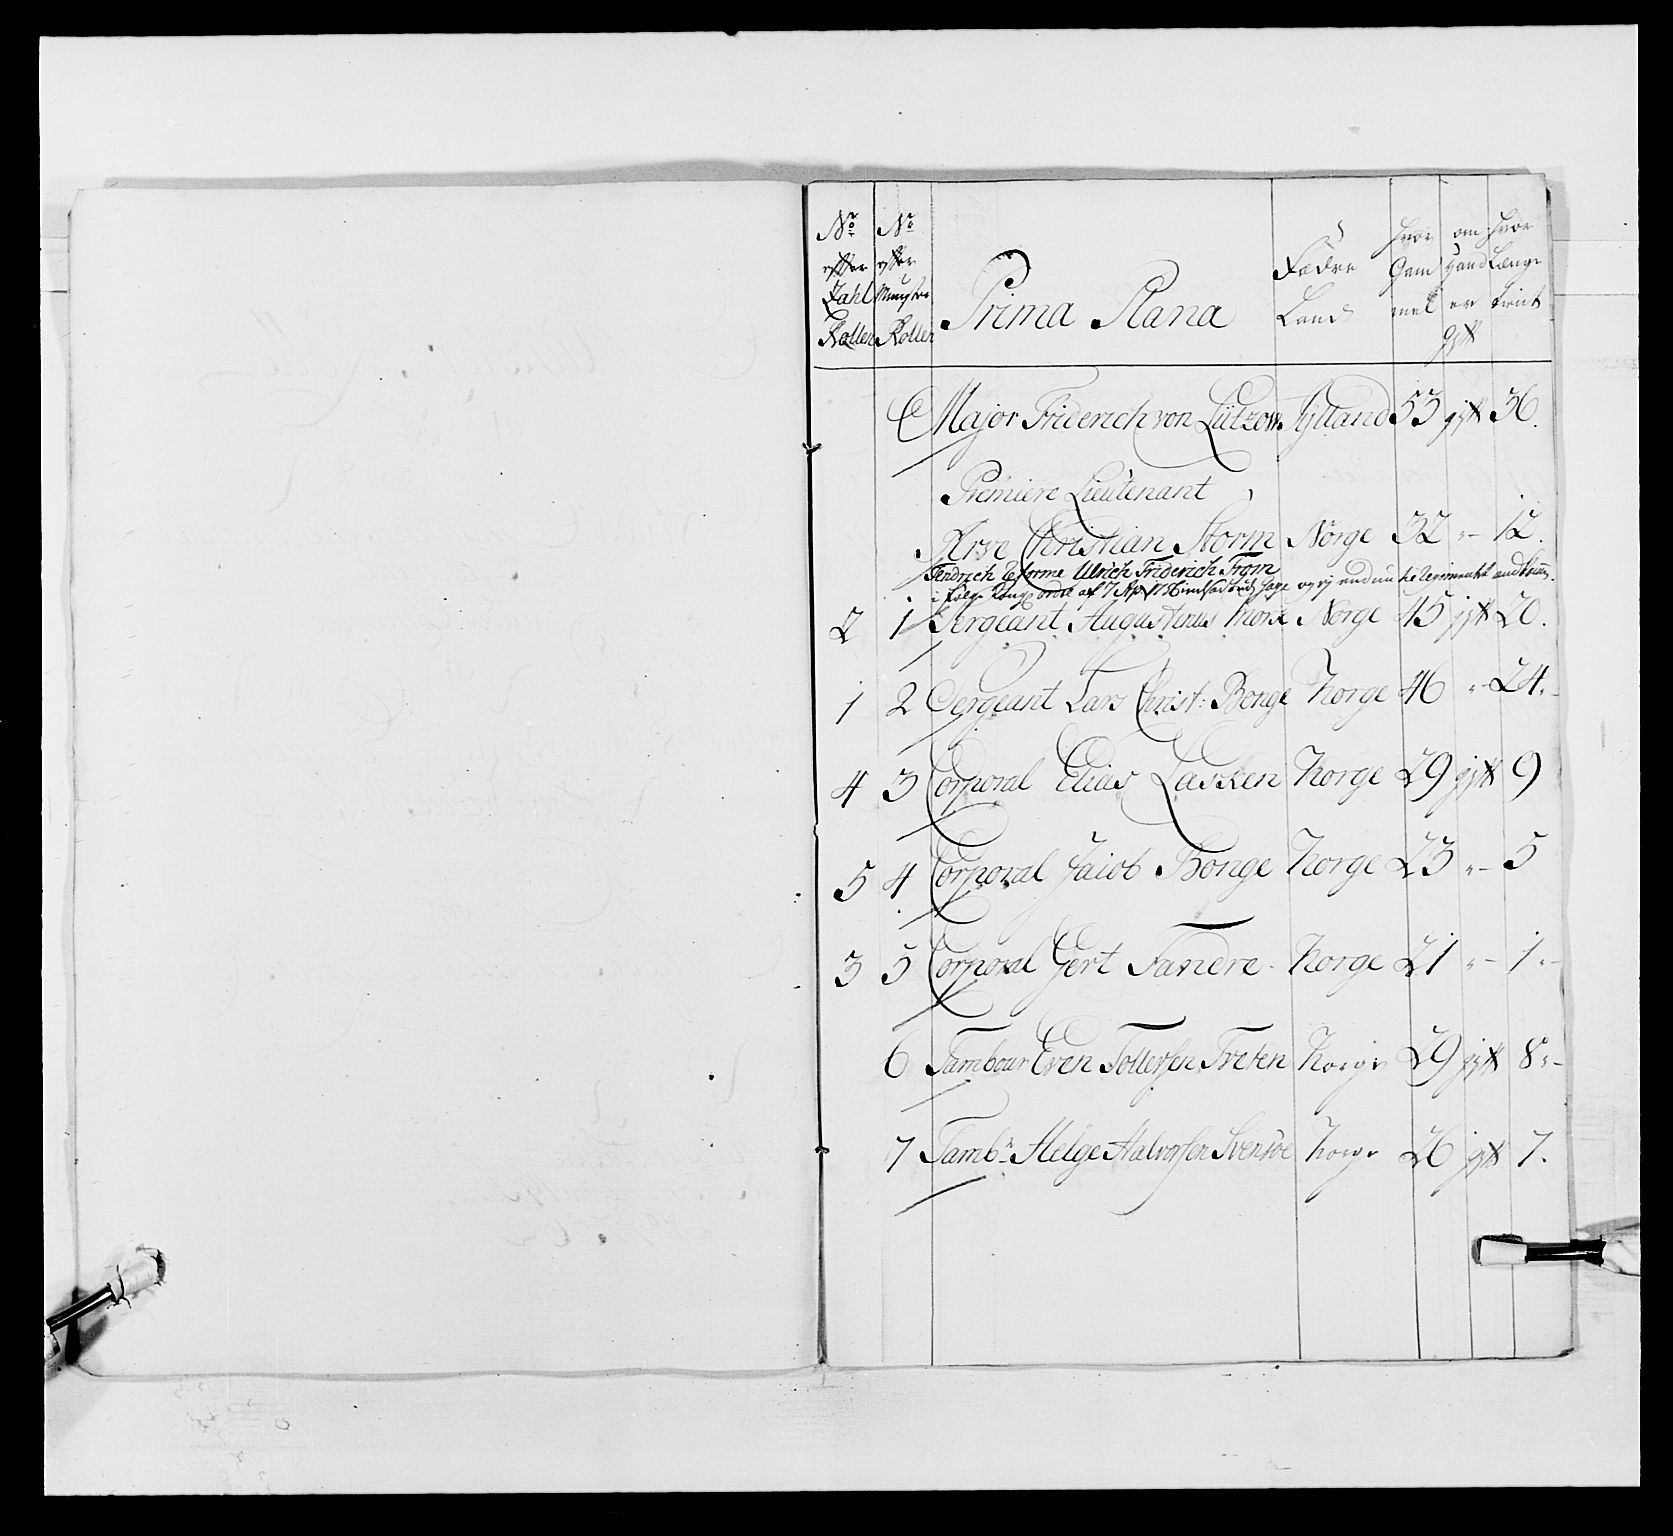 No efter Zahl Rollen | No efter Munster Rollen | Prima Plana | Fædre Land | hvor Gam mel | om Hand er gift | hvor Længe tient
Major Friderich von Lützow Jylland 53 gift 36.
Premiere Lieutenant
Christian Storm Norge 32 "- 12.
Fendrich Reforme Ulrich Friderich From
i følge Kong: ordre af 7 Apr: og ej endnu Regimentet
2 1 Sergeant Augustinus More Norge 45 gift 20.
1 2 Sergeant Lars Christ: Benge Norge 46 "- 24.-
4 3 Corporal Elias Lassen Norge 29 gift 9
5 4 Corporal Jacob Bonge Norge 23 "- 5
3 5 Corporal Gert Fandre Norge 21 "- 1.-
6 Tambour Even Tollefsen Treten Norge 29 gift 8.-
7 Tambr: Helge Halvorsen Svensøe Norge 26 gift 7.